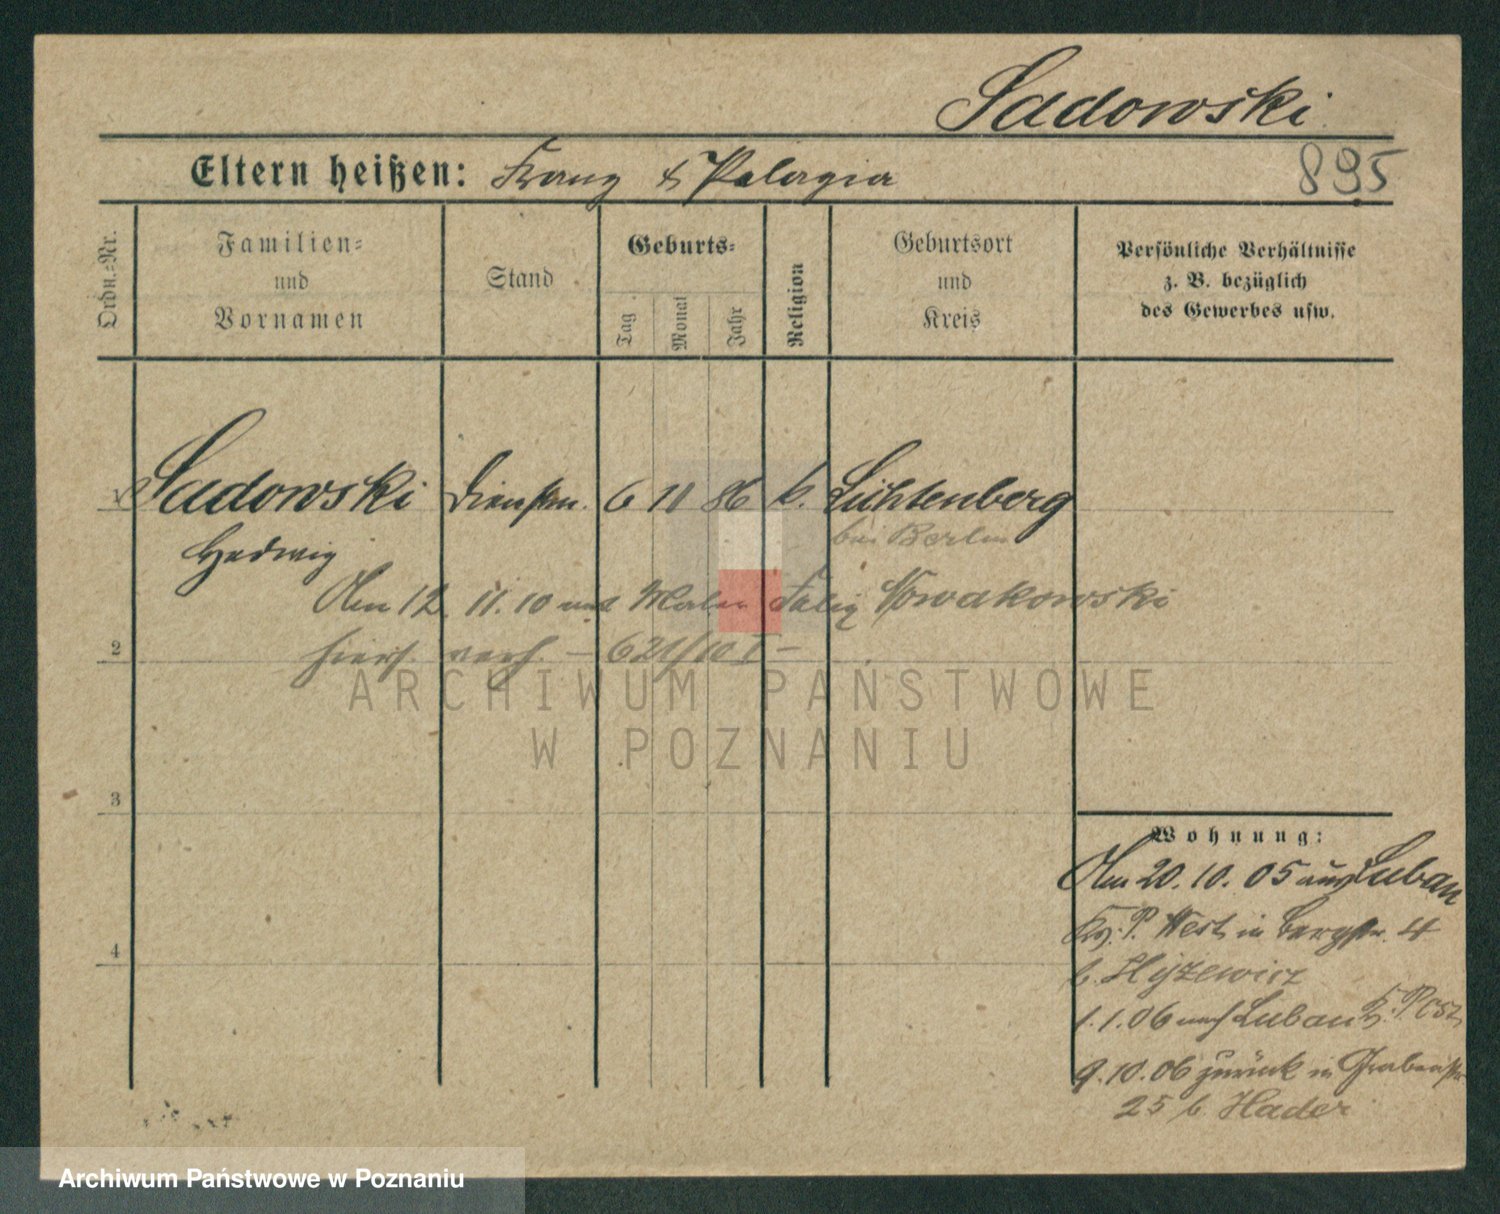 Sadowski
895
Eltern heißen: Franz & Pelagia
Ordn.-Nr.
Familien-
und
Vornamen
Stand
Geburts-
Tag
Monat
Jahr
Religion
Geburtsort
und
Kreis
Persönliche Verhältnisse
z. B. bezüglich
des Gewerbes usw.
1 Sadowski 6 11 86 k. Lichtenberg
Hedwig bei Berlin
Am 12. 11. 10 mit Maler Nowakowski
hiers. verh. – 621/10 I –
2
3
4
Wohnung:
Am 20.10.05 aus Luban
Kr. P. West in Bergstr. 4
b. Hyzewicz
1.1.06 nach Luban Kr. P. Ost
9.10.06 zurück in Grabenstr
25 b. Hader
ARCHIWUM PAŃSTWOWE
W POZNANIU
Archiwum Państwowe w Poznaniu